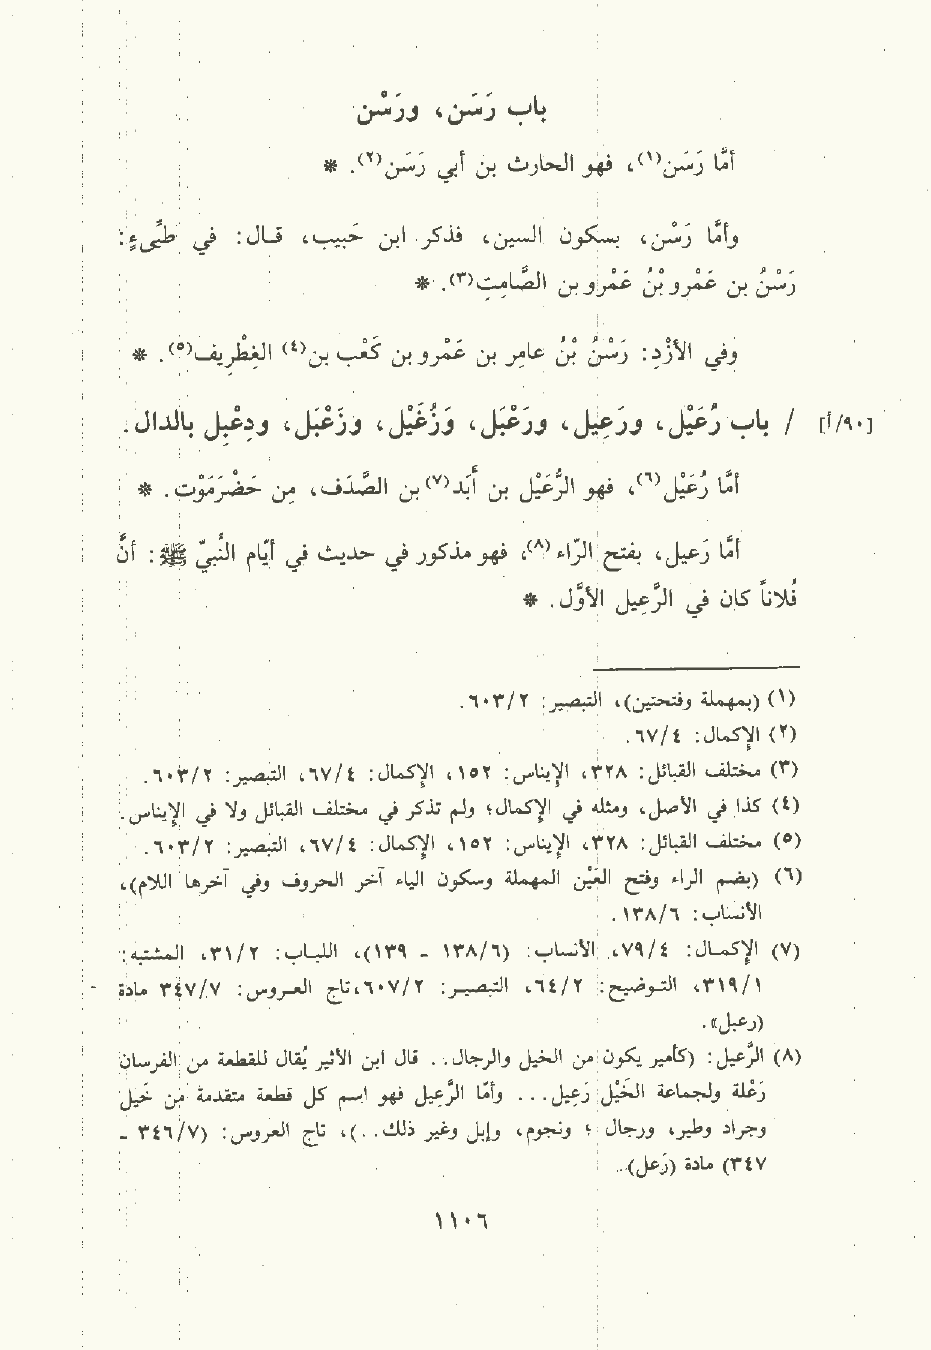 باب رَسَن ، ورَسْن
أمَّا رَسَن(١)، فهو الحارث بن أبي رَسَن(٢). *
وأمَّا رَسْن ، بسكون السين ، فذكر ابن حَبيب ، قـال : في طيِّىءٍ :
رَسْنُ بن عَمْرو بْنُ عَمْرو بن الصَّامِت(٣). *
وفي الأزْدِ : رَسْنُ بْنُ عامِر بن عَمْرو بن كَعْب بن(٤) الغِطْرِيف(٥). *
[٩٠/أ] / باب رُعَيْل ، ورَعِيل ، ورَعْبَل ، وَزُغَيْل ، وزَعْبَل ، ودِعْبِل بالدال .
أمَّا رُعَيْل(٦)، فهو الرُّعَيْل بن أُبَد(٧) بن الصَّدَف ، مِن حَضْرَمَوْت . *
أمَّا رَعيل ، بفتح الرّاء(٨)، وهو مذكور في حديث في أيّام النُّبيّ ﷺ : أنَّ
فُلاناً كان في الرَّعِيل الأوَّل . *
(١) (بمهملة وفتحتين)، التبصير : ٦٠٣/٢.
(٢) الإكمال : ٦٧/٤.
(٣) مختلف القبائل : ٣٢٨، الإيناس : ١٥٢، الإكمال : ٦٧/٤، التبصير : ٦٠٣/٢.
(٤) كذا في الأصل، ومثله في الإكمال؛ ولم تذكر في مختلف القبائل ولا في الإيناس.
(٥) مختلف القبائل : ٣٢٨، الإيناس : ١٥٢، الإكمال : ٦٧/٤، التبصير : ٦٠٣/٢.
(٦) (بضم الراء وفتح العَيْن المهملة وسكون الياء آخر الحروف وفي آخرها اللام)،
الأنساب : ١٣٨/٦.
(٧) الإكمـال : ٧٩/٤، الأنساب : (١٣٨/٦ - ١٣٩)، اللبـاب : ٣١/٢، المشتبه :
٣١٩/١، التـوضيح : ٦٤/٢، التبصيـر : ٦٠٧/٢، تاج العـروس : ٣٤٧/٧ مادة
(رعبل)».
(٨) الرَّعيل : (كأمير يكون من الخيل والرجال. . قال ابن الأثير يُقال للقطعة من الفرسان
رَعْلة ولجماعة الخَيْل رَعِيل. . . وأمّا الرَّعِيل فهو اسم كل قطعة متقدمة من خَيل
وجراد وطير، ورجال ؛ ونجوم، وإبل وغير ذلك. .)، تاج العروس : (٣٤٦/٧ -
٣٤٧) مادة (رَعل).
١١٠٦